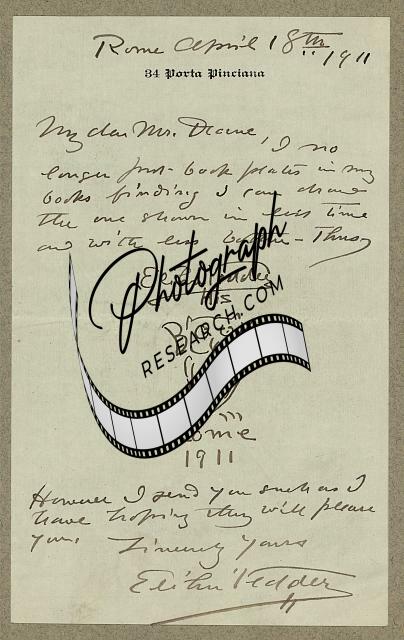 Rome April 18th 1911
34 Porta Pinciana
My dear Mr. Deane, I no
longer put book plates in my
books finding I can draw
the one shown in less time
and with less bother - Thus
Elihu Vedder
his
Rome
1911
However I send you such as I
have hoping they will please
you. Sincerely Yours
Elihu Vedder
Photograph
RESEARCH.COM